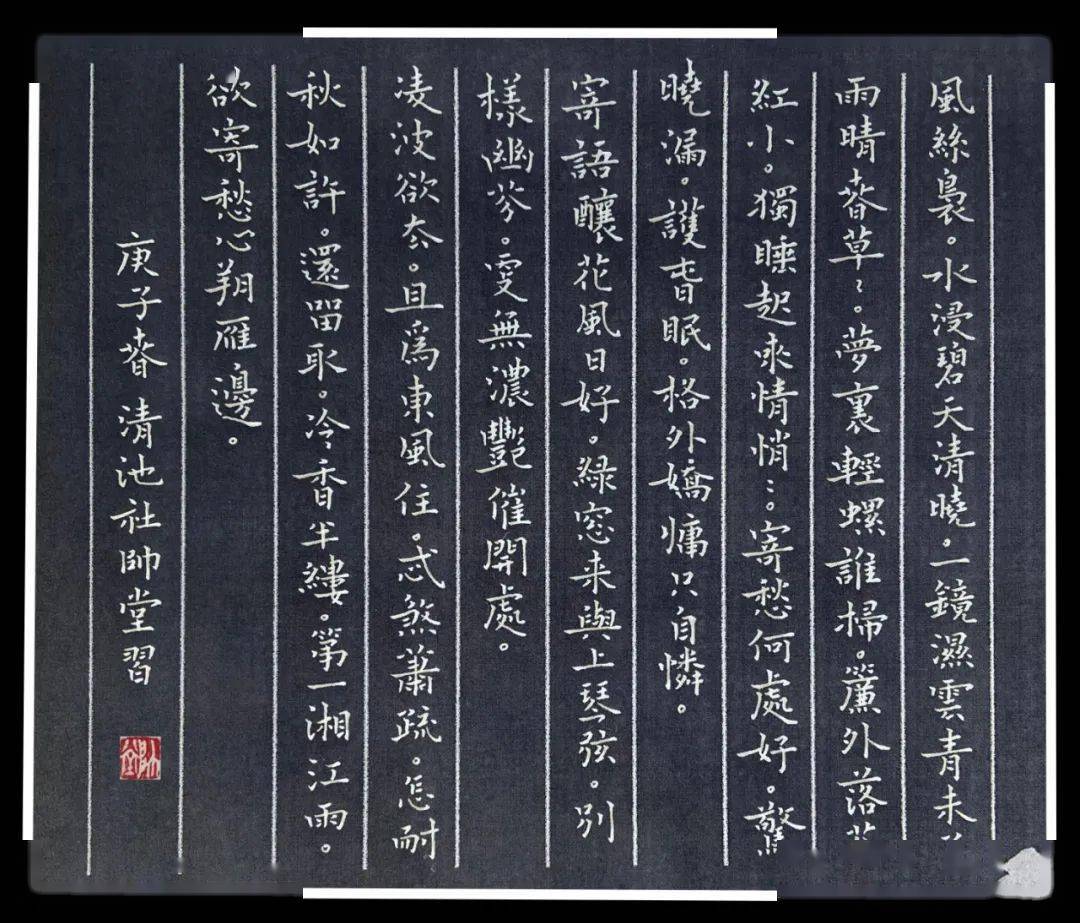 風絲裊。水浸碧天清曉。一鏡濕雲青未
雨晴春草〻。夢裏輕螺誰掃。簾外落
紅小。獨睡起來情悄〻。寄愁何處好。驚
曉漏。護春眠。格外嬌慵只自憐。
寄語釀花風日好。綠窓来與上琴弦。別
樣幽芬。更無濃豔催開處。
凌波欲去。且爲東風住。忒煞蕭疏。怎耐
秋如許。還留取。冷香半縷。第一湘江雨。
欲寄愁心朔雁邊。
庚子春 清池社帥堂習